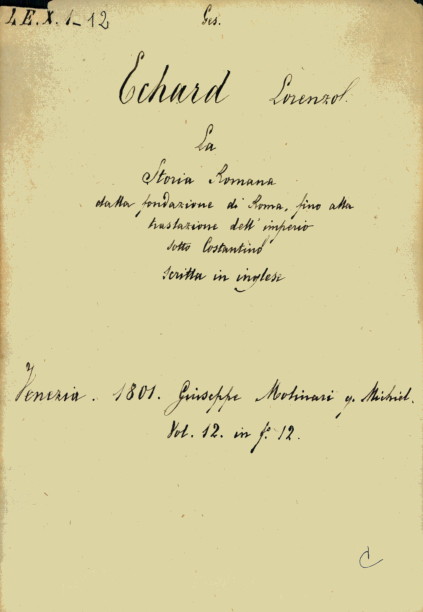 I.E.X. 1-12
Ges.
Echard Lorenzo.
La
Storia Romana
dalla fondazione di Roma, fino alla
traslazione dell' imperio
sotto Costantino
scritta in inglese
Venezia. 1801. Giuseppe Molinari q. Michiel.
Vol. 12. in f.º 12.
C